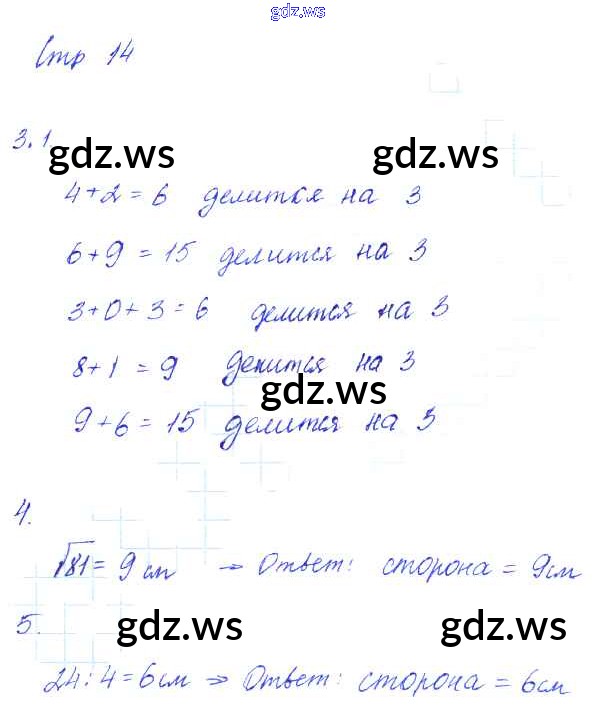 gdz.ws
Стр 14
3.1
gdz.ws
gdz.ws
4+2=6 делится на 3
6+9=15 делится на 3
3+0+3=6 делится на 3
8+1=9 делится на 3
gdz.ws
9+6=15 делится на 3
4.
√81=9см → Ответ: сторона = 9см
5.
gdz.ws
gdz.ws
24:4=6см ⇒ Ответ: сторона = 6см